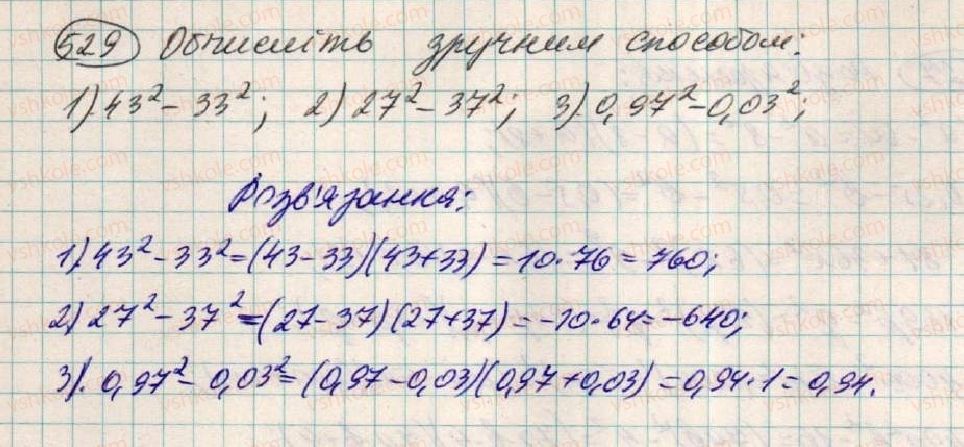 529 Обчисліть зручним способом:
1) 43² - 33²; 2) 27² - 37²; 3) 0,97² - 0,03²;
Розв'язання:
1) 43² - 33² = (43 - 33)(43 + 33) = 10 · 76 = 760;
2) 27² - 37² = (27 - 37)(27 + 37) = -10 · 64 = -640;
3) 0,97² - 0,03² = (0,97 - 0,03)(0,97 + 0,03) = 0,94 · 1 = 0,94.